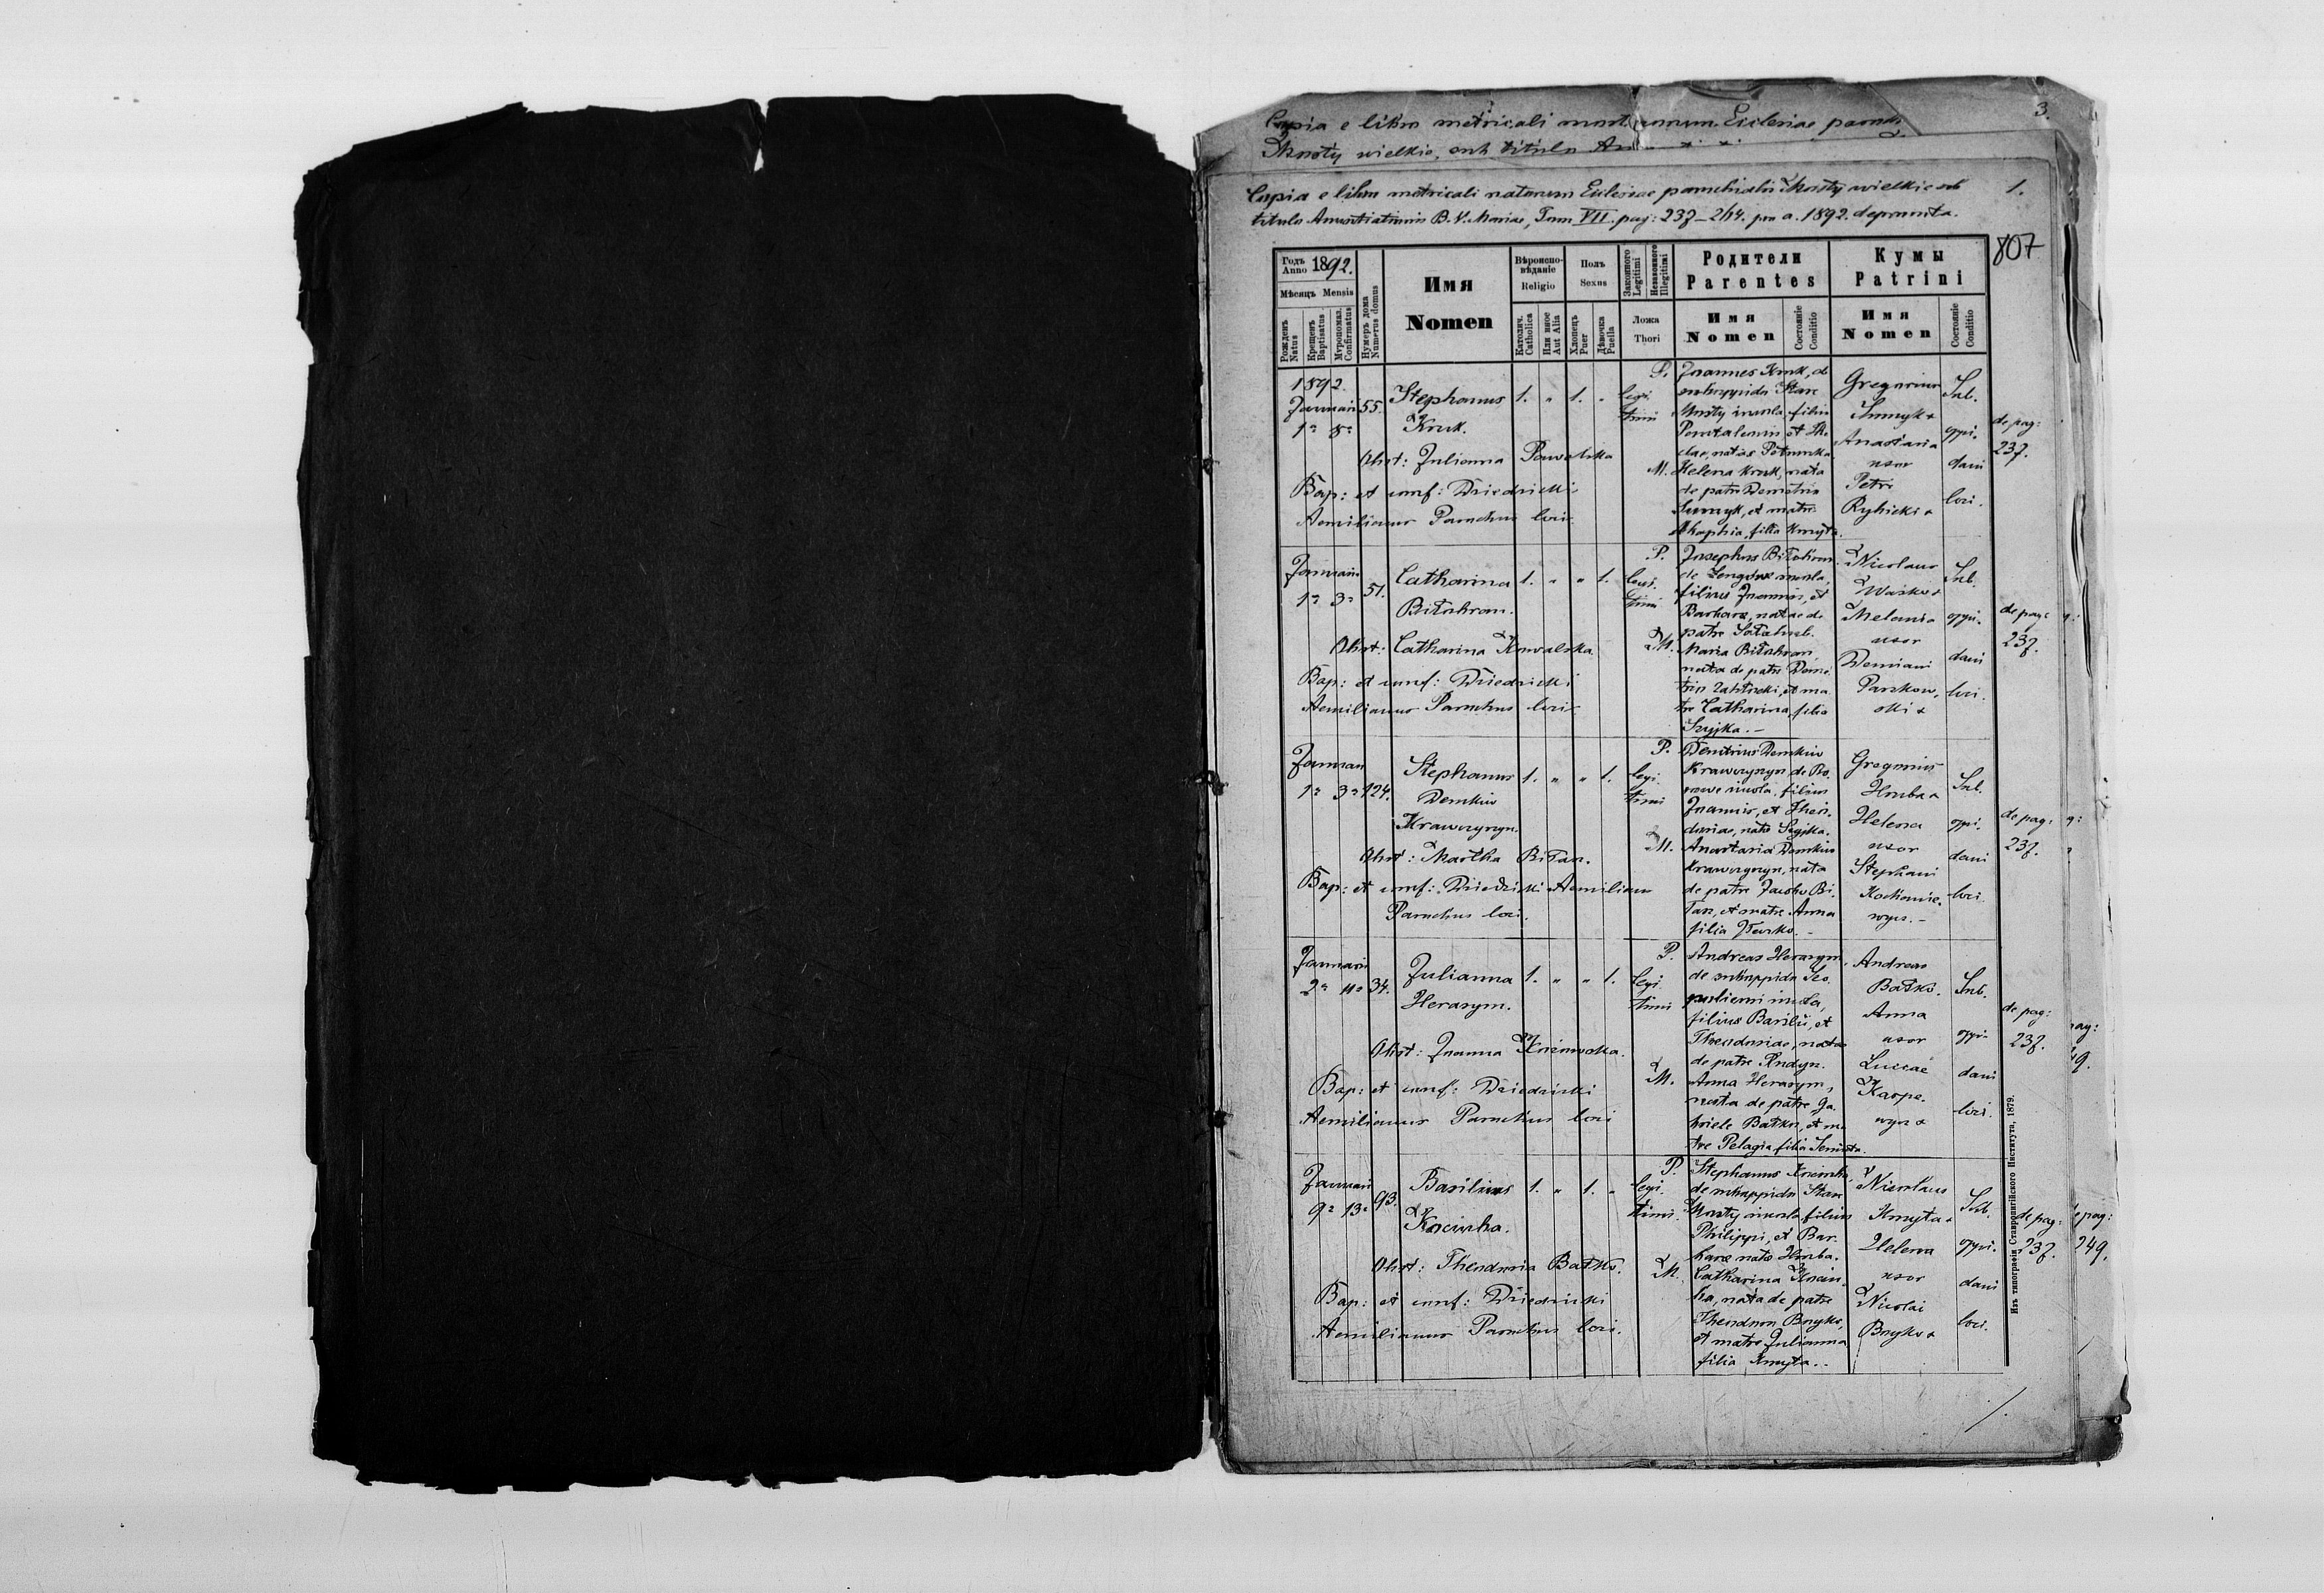 Copia e libro metricali mortuorum Ecclesiae paroch
3.
Mosty wielkie, sub titulo
Copia e libro metricali natorum Ecclesiae parochialis Mosty wielkie sub
1.
titulo Annuntiationis B. V. Mariae, Tom VII. pag: 237–244. pro a. 1892. deprompta.
807
Годъ Anno 1892.
Мѣсяцъ Mensis
Рожденъ Natus
Крещенъ Baptisatus
Мѵропомаз. Confirmatus
Нумеръ дома Numerus domus
Имя
Nomen
Вѣроиспо-
вѣданіе
Religio
Католич. Catholica
Или иное Aut Alia
Полъ
Sexus
Хлопецъ Puer
Дѣвочка Puella
Законного Legitimi
Незаконного Illegitimi
Ложа
Thori
Родители
Parentes
Имя
Nomen
Состояніе Conditio
Кумы
Patrini
Имя
Nomen
Состояніе Conditio
1892.
Januarii 55.
1a 8a
Stephanus 1. " 1. "
Kruk.
legi
timi
Obst: Julianna
Bap: et conf: Dziedzicki
Aemilianus Parochus loci.
P. Joannes Kruk, de
suboppido Stare
Mosty incola, filius
Pantalemonis et
natae
M. Helena Kruk, nata
de patre Demetrio
et matre
filia Kmyta.
Gregorius
Anastasia
uxor
Petri
Rybicki +
Sub.
oppi-
dani
loci.
de pag:
237.
Januarii
1a 3a 51.
Catharina 1. " " 1.
legi
timi
Obst: Catharina Kowalska.
Bap: et conf: Dziedzicki
Aemilianus Parochus loci.
P. Josephus
incola,
filius Joannis, et
Barbarae, natae de
patre
M. Maria
nata de patre Deme
trio et ma
tre Catharina, filia
Szyjka. –
Nicolaus
Wasko +
Melania
uxor
Demiani
Parkow,
ski +
Sub.
oppi-
dani
loci.
de pag:
237.
Januarii
1a 3a 124.
Stephanus 1. " " 1.
Demkiw
Krawczyszyn.
legi
timi
Obst: Martha
Bap: et conf: Dziedzicki Aemilianus
Parochus loci.
P. Demetrius Demkiw
Krawczyszyn de
incola, filius
Joannis, et Theo-
doriae, nata Szyjka.
M. Anastasia Demkiw
Krawczyszyn, nata
de patre Jacobo Bi
et matre Anna
filia Wasko. –
Gregorius
Hruba +
Helena
uxor
Stephani
Sub.
oppi-
dani
loci.
de pag:
237.
Januarii
2a 4a 34.
Julianna 1. " " 1.
Herasym.
legi
timi
Obst: Joanna
Bap: et conf: Dziedzicki
Aemilianus Parochus loci
P. Andreas Herasym,
de suboppido
incola,
filius Basilii, et
Theodoriae, nata
de patre
M. Anna Herasym,
nata de patre Ga
briele Batko, et ma
tre Pelagia filia
Andreas
Batko.
Anna
uxor
Luccae
Karpo.
wycz +
Sub.
oppi-
dani
loci.
de pag:
237.
Januarii
9a 13a 93.
Basilius 1. " 1. "
Kociuba.
legi.
timi.
Obst: Theodoria Batko.
Bap: et conf: Dziedzicki
Aemilianus Parochus loci.
P. Stephanus Kociuba,
de suboppido Stare
Mosty incola filius
Philippi, et Bar
barae nata Hruba.
M. Catharina Kociu-
ba, nata de patre
Theodoro Boyko,
et matre Julianna
filia Kmyta. –
Nicolaus
Kmyta +
Helena
uxor
Nicolai
Boyko +
Sub.
oppi-
dani
loci.
de pag:
237.
249.
Изъ типографіи Ставропигійского Института, 1879.